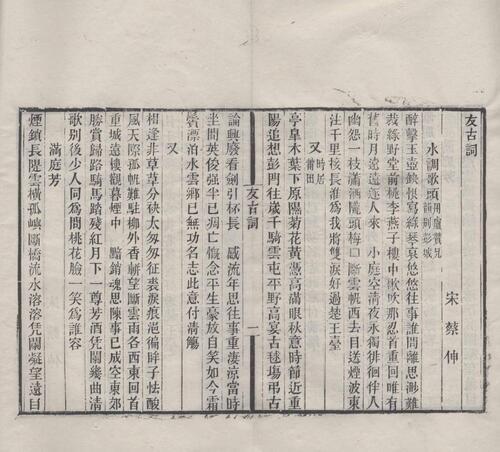 友古詞
宋 蔡 伸
水調歌頭 用盧贊元韻別彭城
醉擊玉壺缺恨寫綠琴哀悠悠往事誰問離思渺難
裁綠野堂前桃李燕子樓中歌吹那忍首重回唯有
舊時月遠遠逐人來 小庭空清夜永獨徘徊伴人
幽怨一枝瀟洒隴頭梅 斷雲帆西去目送煙波東
注千里接長淮爲我將雙淚好過楚王臺
又 時居莆田
亭皋木葉下原隰菊花黃憑高滿眼秋意時節近重
陽追想彭門往歲千騎雲屯平野高宴古毬場弔古
友古詞 一
論興廢看劍引杯長 感流年思往事重淒涼當時
坐間英俊強半已凋亡慨念平生豪放自笑如今霜
鬢漂泊水雲鄉已無功名志此意付清觴
又
相逢非草草分袂太匆匆征裘淚痕浥徧眸子怯酸
風天際孤帆難駐柳外香軿望斷雲雨各西東回首
重城遠樓觀暮煙中 黯銷魂思陳事已成空東郊
勝賞歸路騎馬踏殘紅月下一尊芳酒凭闌幾曲清
歌別後少人同爲問桃花臉一笑爲誰容
滿庭芳
煙鎖長隄雲橫孤嶼斷橋流水溶溶凭闌凝望遠目